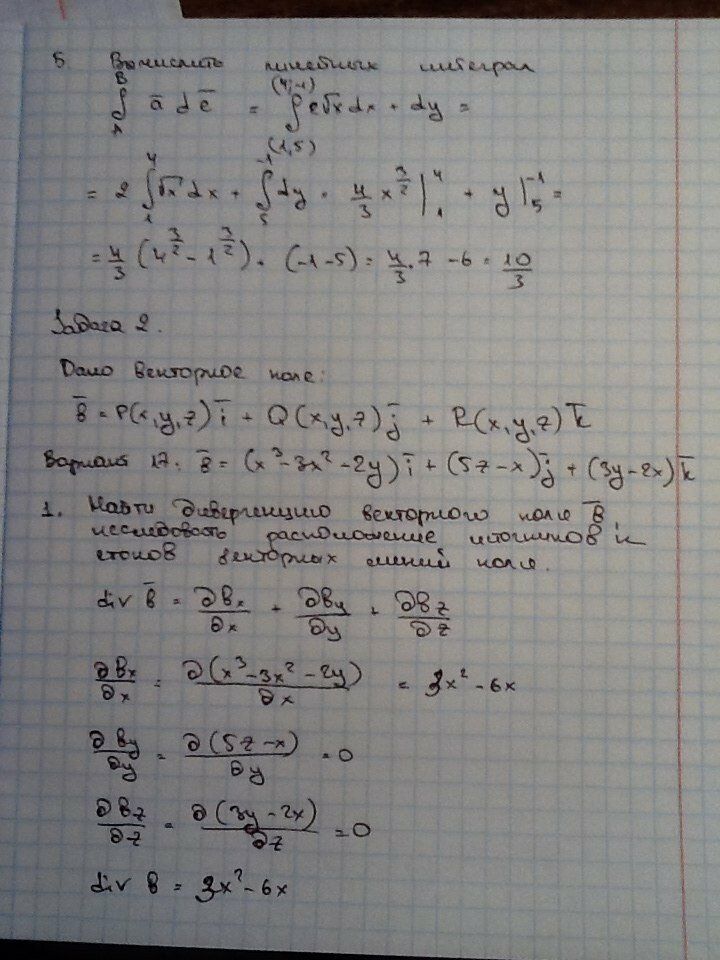 5. Вычислить линейных интеграл
∫_A^B ā d ē = ∫_{(1,5)}^{(4,-1)} 2√x dx + dy =
= 2 ∫_1^4 √x dx + ∫_5^{-1} dy = 4/3 x^{3/2} |_1^4 + y |_5^{-1} =
= 4/3 (4^{3/2} - 1^{3/2}) + (-1-5) = 4/3 · 7 - 6 = 10/3
Задача 2.
Дано векторное поле:
B̄ = P(x,y,z) ī + Q(x,y,z) j̄ + R(x,y,z) k̄
Вариант 17: B̄ = (x³-3x²-2y) ī + (5z-x) j̄ + (3y-2x) k̄
1. Найти дивергенцию векторного поле B̄,
исследовать расположение источников и
стоков векторных линий поле.
div B̄ = ∂Bx/∂x + ∂By/∂y + ∂Bz/∂z
∂Bx/∂x = ∂(x³-3x²-2y)/∂x = 3x² - 6x
∂By/∂y = ∂(5z-x)/∂y = 0
∂Bz/∂z = ∂(3y-2x)/∂z = 0
div B = 3x² - 6x